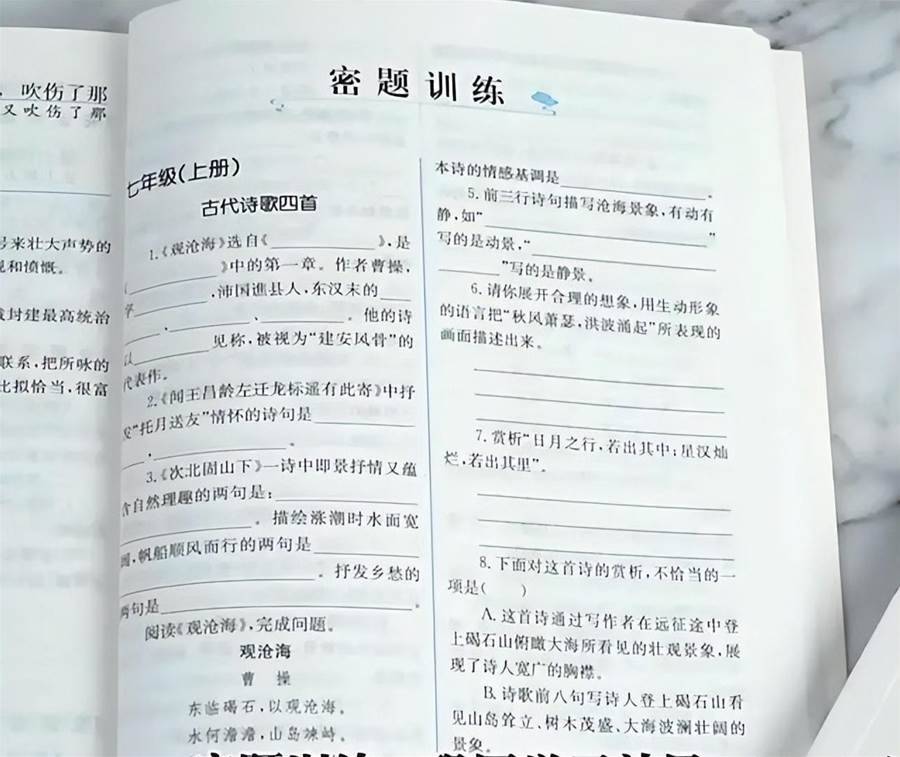 ，吹伤了那
又吹伤了那
来壮大声势的
和愤慨。
封建最高统治
联系，把所咏的
比拟恰当，很富
密题训练
七年级(上册)
古代诗歌四首
1.《观沧海》选自《____》，是
____》中的第一章。作者曹操，
字____，沛国谯县人，东汉末的____
____、____、____。他的诗
以____见称，被视为“建安风骨”的
代表作。
2.《闻王昌龄左迁龙标遥有此寄》中抒
发“托月送友”情怀的诗句是____
____，____。
3.《次北固山下》一诗中即景抒情又蕴
含自然理趣的两句是：____
____。描绘涨潮时水面宽
阔，帆船顺风而行的两句是____
____。抒发乡愁的
两句是____。
阅读《观沧海》，完成问题。
观沧海
曹操
东临碣石，以观沧海。
水何澹澹，山岛竦峙。
本诗的情感基调是____。
5.前三行诗句描写沧海景象，有动有
静，如“____”
写的是动景，“____
____”写的是静景。
6.请你展开合理的想象，用生动形象
的语言把“秋风萧瑟，洪波涌起”所表现的
画面描述出来。
7.赏析“日月之行，若出其中；星汉灿
烂，若出其里”。
8.下面对这首诗的赏析，不恰当的一
项是(　　)
A.这首诗通过写作者在远征途中登
上碣石山俯瞰大海所看见的壮观景象，展
现了诗人宽广的胸襟。
B.诗歌前八句写诗人登上碣石山看
见山岛耸立、树木茂盛、大海波澜壮阔的
景象。